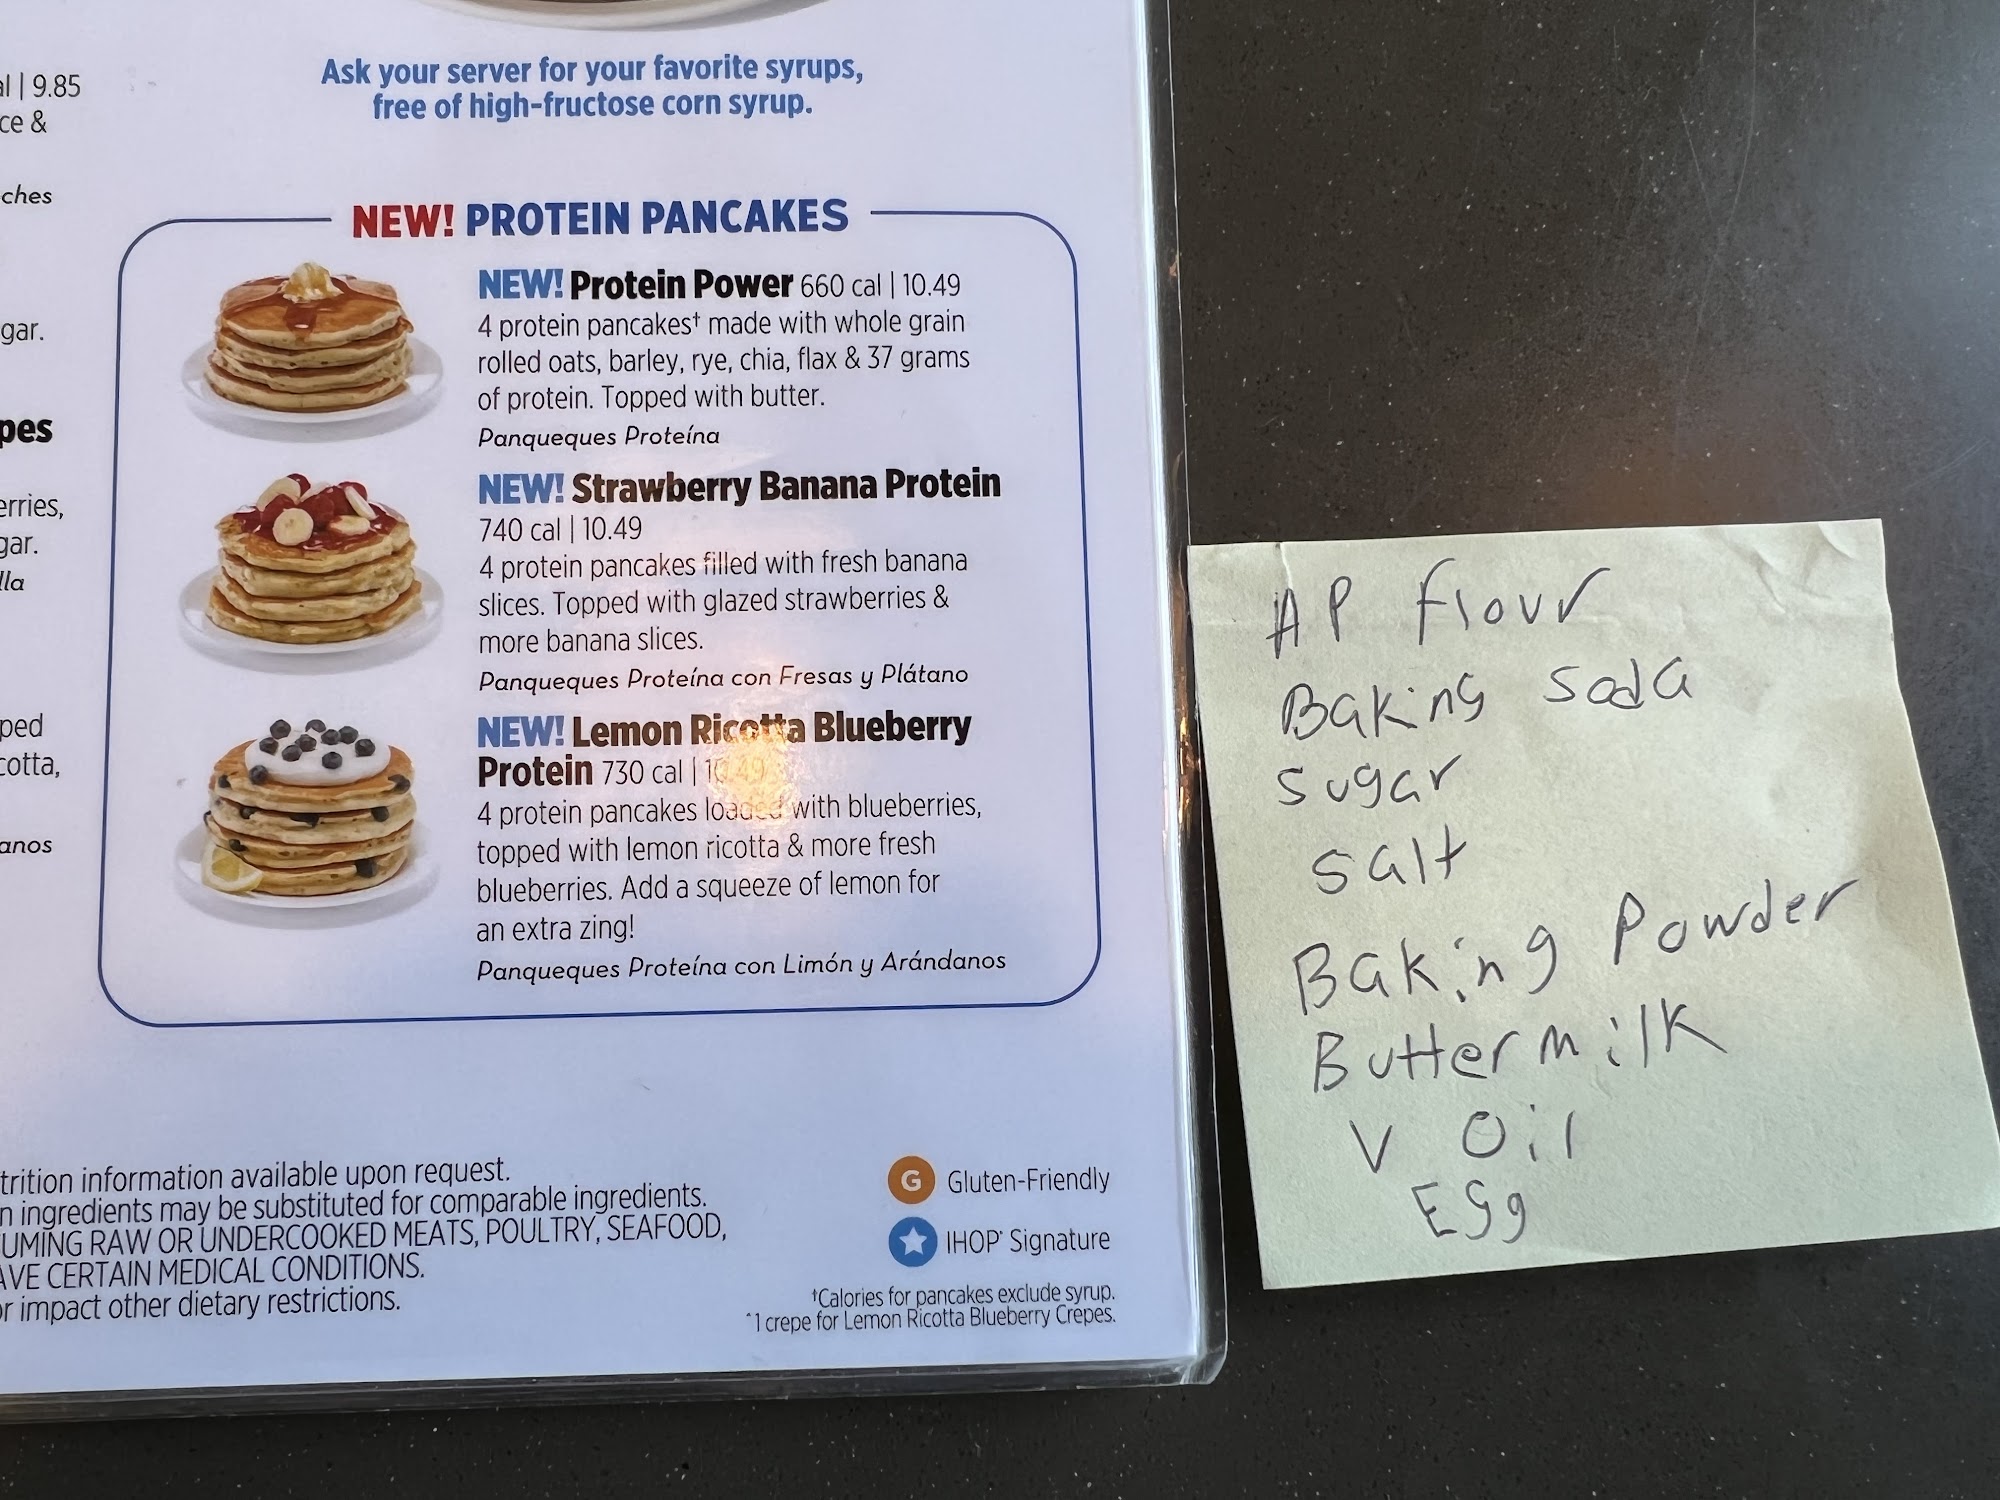 al | 9.85
ce &
ches
gar.
pes
erries,
gar.
lla
ped
cotta,
anos
Ask your server for your favorite syrups,
free of high-fructose corn syrup.
NEW! PROTEIN PANCAKES
NEW! Protein Power 660 cal | 10.49
4 protein pancakes† made with whole grain
rolled oats, barley, rye, chia, flax & 37 grams
of protein. Topped with butter.
Panqueques Proteína
NEW! Strawberry Banana Protein
740 cal | 10.49
4 protein pancakes filled with fresh banana
slices. Topped with glazed strawberries &
more banana slices.
Panqueques Proteína con Fresas y Plátano
NEW! Lemon Ricotta Blueberry
Protein 730 cal | 10.49
4 protein pancakes loaded with blueberries,
topped with lemon ricotta & more fresh
blueberries. Add a squeeze of lemon for
an extra zing!
Panqueques Proteína con Limón y Arándanos
trition information available upon request.
n ingredients may be substituted for comparable ingredients.
UMING RAW OR UNDERCOOKED MEATS, POULTRY, SEAFOOD,
AVE CERTAIN MEDICAL CONDITIONS.
or impact other dietary restrictions.
G Gluten-Friendly
IHOP® Signature
†Calories for pancakes exclude syrup.
^1 crepe for Lemon Ricotta Blueberry Crepes.
AP flour
Baking soda
sugar
salt
Baking Powder
Buttermilk
V Oil
Egg